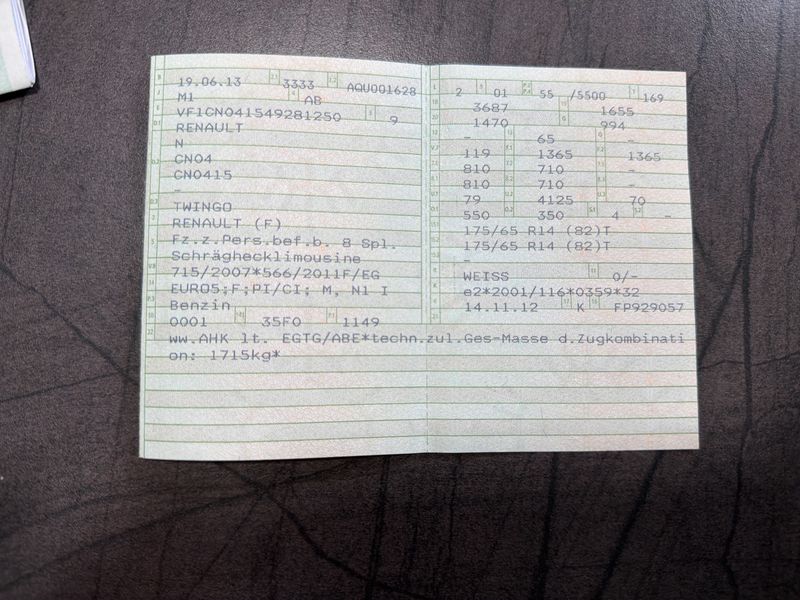 19.06.13 3333 AQU001628
M1 AB
VF1CN041549281250 9
RENAULT
N
CN04
CN0415
-
TWINGO
RENAULT (F)
Fz.z.Pers.bef.b. 8 Spl.
Schräghecklimousine
715/2007*566/2011F/EG
EURO5;F;PI/CI; M, N1 I
Benzin
0001 35F0 1149
2 01 55 /5500 169
3687 1655
1470 994
- 65 -
119 1365 1365
810 710 -
810 710 -
79 4125 70
550 350 4 -
175/65 R14 (82)T
175/65 R14 (82)T
-
WEISS 0/-
e2*2001/116*0359*32
14.11.12 K FP929057
ww.AHK lt. EGTG/ABE*techn.zul.Ges-Masse d.Zugkombinati
on: 1715kg*